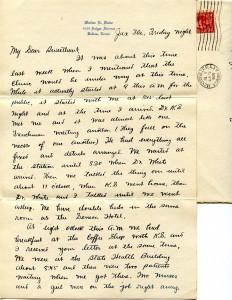 Jax Fla. Friday Night
My Dear Sweetheart
It was about this time
last week when I mentioned that the
Clinic would be under way at this time.
While it actually started at 9 this A.M. for the
public, it started with me as far as last
night and at the time I arrived. Dr. K.B.
met me and it was almost like one
Frenchman meeting another (They feed on the
news of one another). He had everything all
fixed and details arranged. We waited at
the station until 830 when Dr. White
arrived. Then we talked the thing over until
about 11 o'clock, when K.B. went home, then
Dr. White and I talked until we went
asleep. We have double beds in the same
room at the Hotel.
At eight o'clock this A.M. we had
breakfast at the Coffee Shop with K.B. and
I received your letter at the same time.
We were at the State Health Building
about 845 and there were two patients
waiting when we got there. Two Nurses
and a girl were on the job right away,